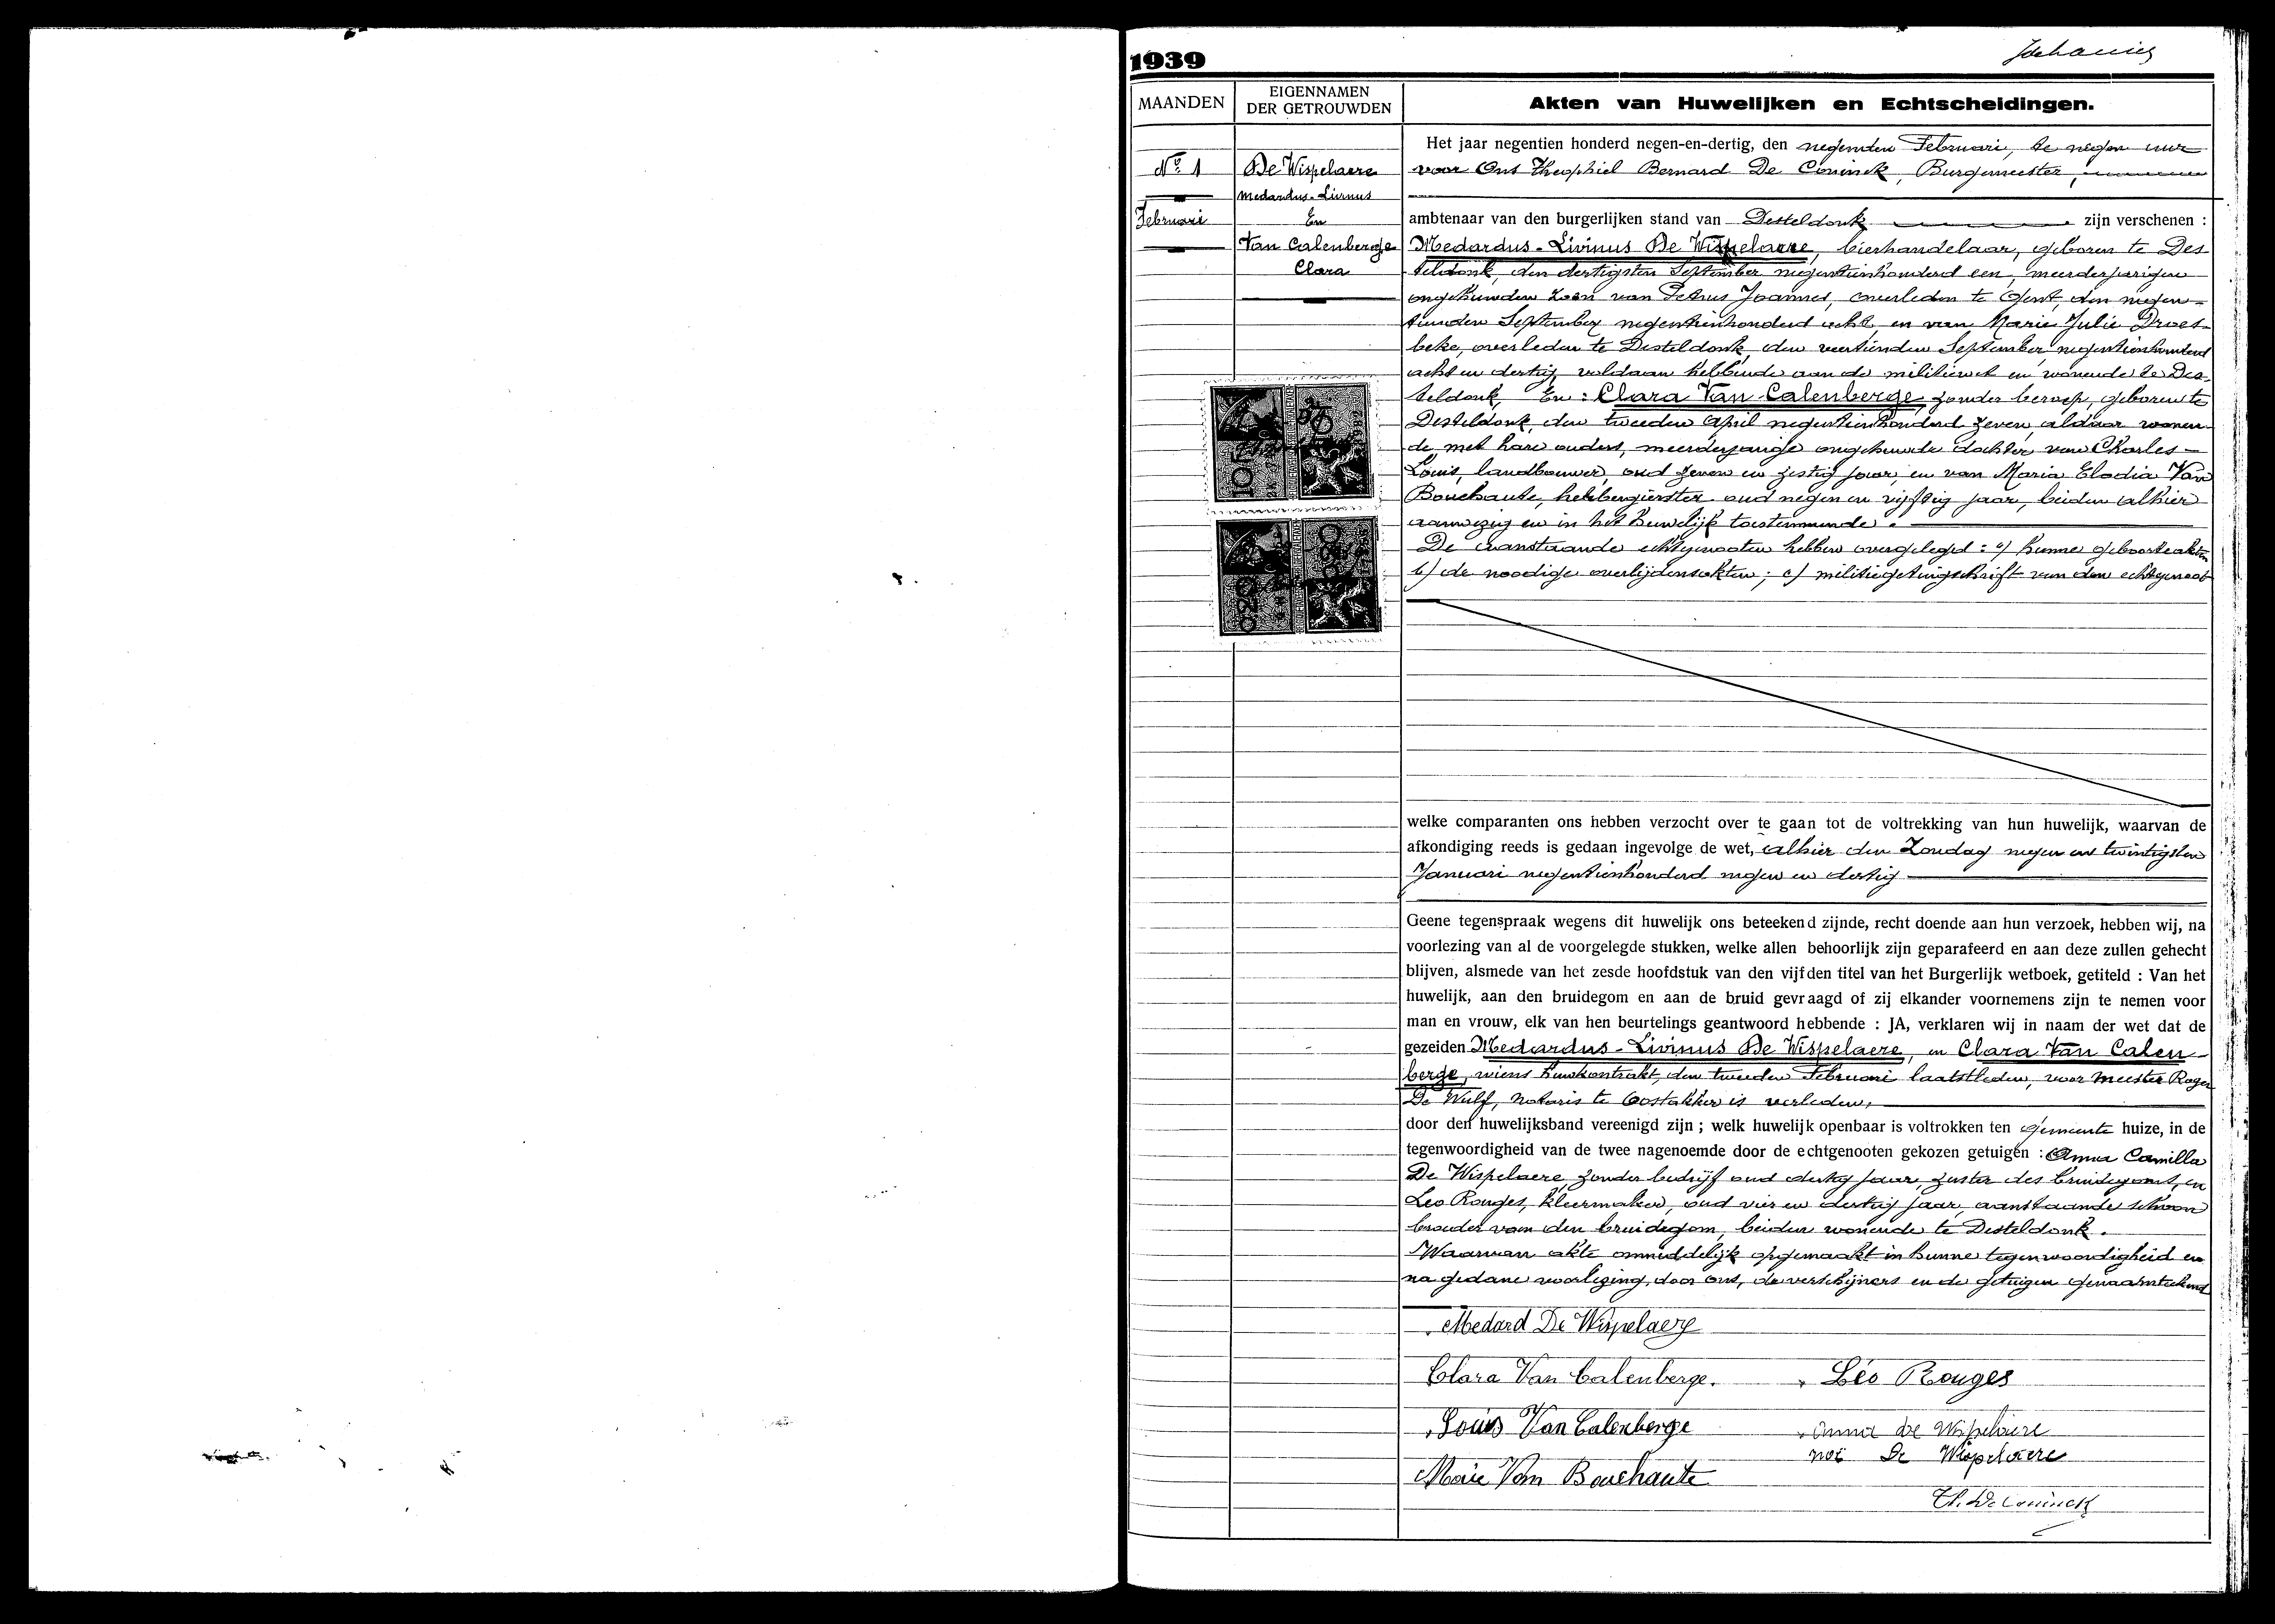 1939
MAANDEN
EIGENNAMEN
DER GETROUWDEN
Akten van Huwelijken en Echtscheidingen.
No. 1
Februari
De Wispelaere
Medardus-Livinus
En
Van Calenberge
Clara
Het jaar negentien honderd negen-en-dertig, den negenden Februari, te negen uur
voor Ons Theophiel Bernard De Coninck, Burgemeester,
ambtenaar van den burgerlijken stand van Desteldonk zijn verschenen :
Medardus-Livinus De Wispelaere, bierhandelaar, geboren te Des-
teldonk, den dertigsten September negentienhonderd een, meerderjarigen
ongehuwden zoon van Petrus Joannes, overleden te Gent, den negen-
tienden September negentienhonderd acht, en van Marie Julie Droes-
beke, overleden te Desteldonk, den veertienden September negentienhonderd
acht en dertig, voldaan hebbende aan de militiewet en wonende te Des-
teldonk, En : Clara Van Calenberge, zonder beroep, geboren te
Desteldonk, den tweeden April negentienhonderd zeven, aldaar wonen-
de met hare ouders, meerderjarige ongehuwde dochter van Charles-
Louis, landbouwer, oud zeven en zestig jaar, en van Maria Elodia Van
Bouchaute, herbergierster oud negen en vijftig jaar, beiden alhier
aanwezig en in het huwelijk toestemmende.
De aanstaande echtgenooten hebben overgelegd : a) hunne geboorteakten
b) de noodige overlijdensakten; c) militiegetuigschrift van den echtgenoot
10
0.20
welke comparanten ons hebben verzocht over te gaan tot de voltrekking van hun huwelijk, waarvan de
afkondiging reeds is gedaan ingevolge de wet, alhier den Zondag negen en twintigsten
Januari negentienhonderd negen en dertig
Geene tegenspraak wegens dit huwelijk ons beteekend zijnde, recht doende aan hun verzoek, hebben wij, na
voorlezing van al de voorgelegde stukken, welke allen behoorlijk zijn geparafeerd en aan deze zullen gehecht
blijven, alsmede van het zesde hoofdstuk van den vijfden titel van het Burgerlijk wetboek, getiteld : Van het
huwelijk, aan den bruidegom en aan de bruid gevraagd of zij elkander voornemens zijn te nemen voor
man en vrouw, elk van hen beurtelings geantwoord hebbende : JA, verklaren wij in naam der wet dat de
gezeiden Medardus-Livinus De Wispelaere, en Clara Van Calen-
berge, wiens huwkontrakt, den tweeden Februari laatstleden, voor Meester Roger
De Wulf, Notaris te Oostakker is verleden,
door den huwelijksband vereenigd zijn ; welk huwelijk openbaar is voltrokken ten gemeente huize, in de
tegenwoordigheid van de twee nagenoemde door de echtgenooten gekozen getuigen : Anna Camilla
De Wispelaere, zonder bedrijf oud dertig jaar, zuster des bruidegoms, en
Leo Rouges, kleermaker, oud vier en dertig jaar, aanstaande schoon
broeder van den bruidegom, beiden wonende te Desteldonk.
Waarvan akte onmiddelijk opgemaakt in hunne tegenwoordigheid en
na gedane voorlezing, door ons, de verschijners en de getuigen genaamteekend
Medard De Wispelaere
Clara Van Calenberge.
Léo Rouges
Louis Van Calenberge
Anna De Wispelaere
De Wispelaere
Marie Van Bouchaute
Th. De Coninck